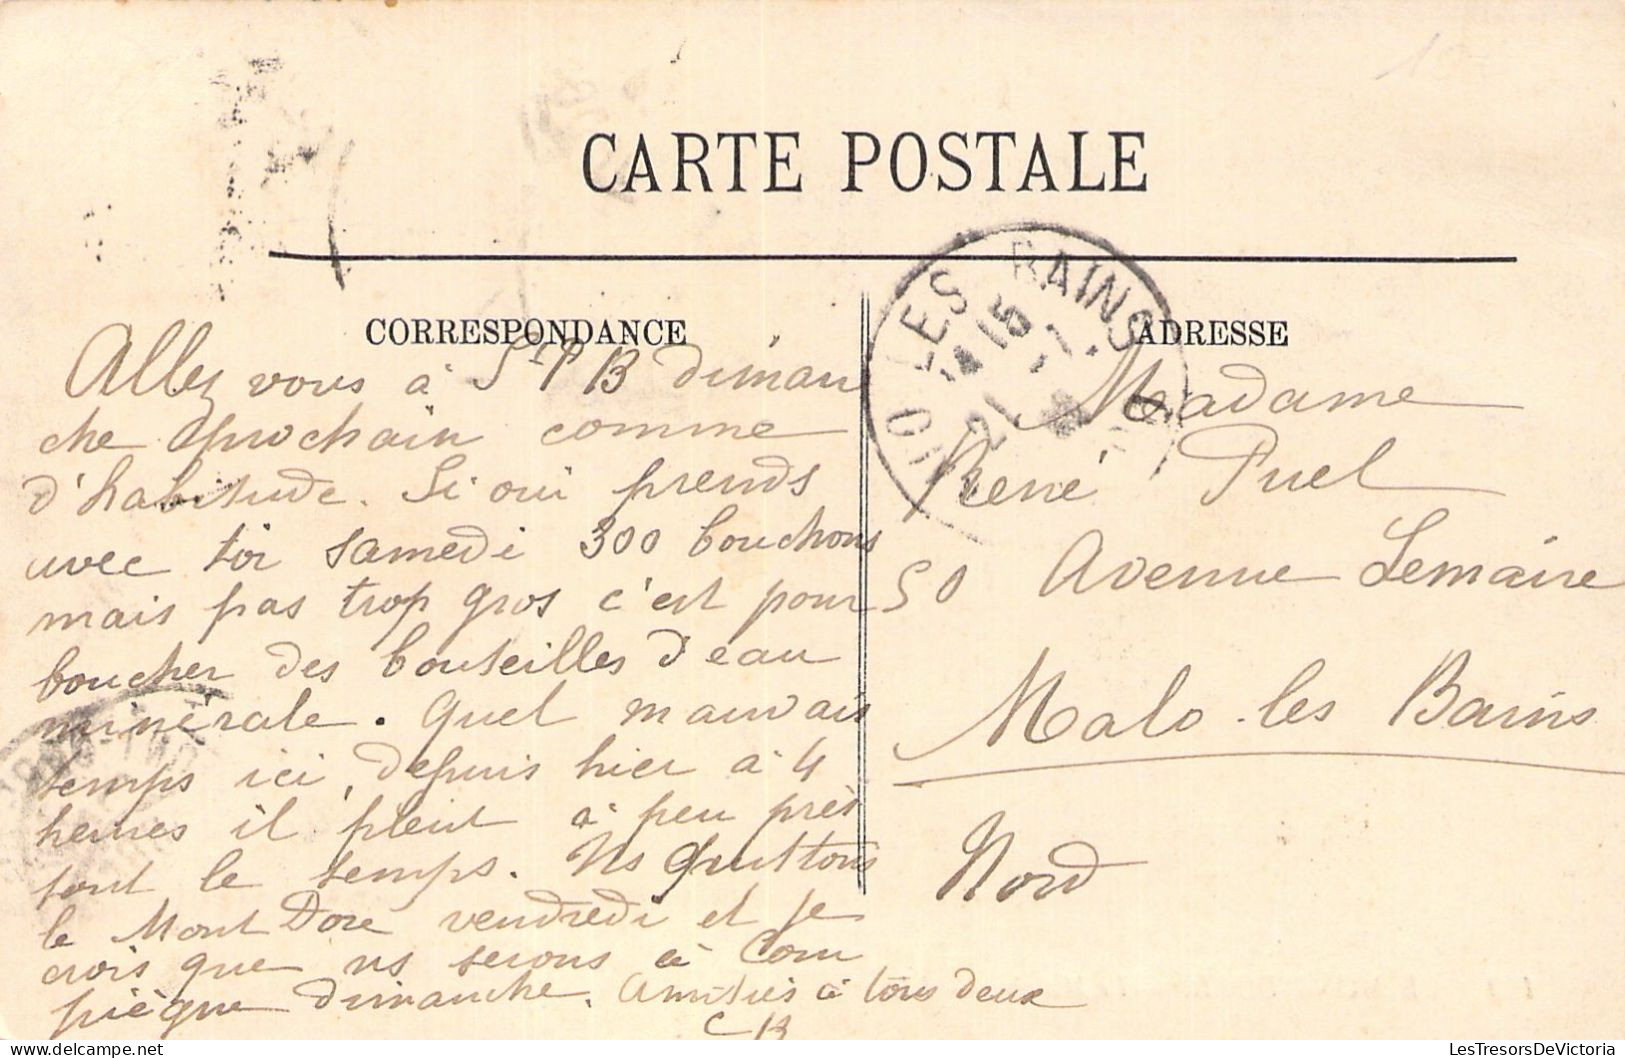 CARTE POSTALE
CORRESPONDANCE
Allez vous à St P B diman
che prochain comme
d'habitude. Si oui prends
avec toi samedi 300 bouchons
mais pas trop gros c'est pour
boucher des bouteilles d'eau
minérale. Quel mauvais
temps ici, depuis hier à 4
heures il pleut à peu près
tout le temps. Ns quittons
le Mont Dore vendredi et je
crois que ns serons à Com
piègne dimanche. Amitiés à tous deux
CB
ADRESSE
Madame
René Puel
50 Avenue Lemaire
Malo-les Bains
Nord
LO LES BAINS
14 15
21 - 7
LesTresorsDeVictoria